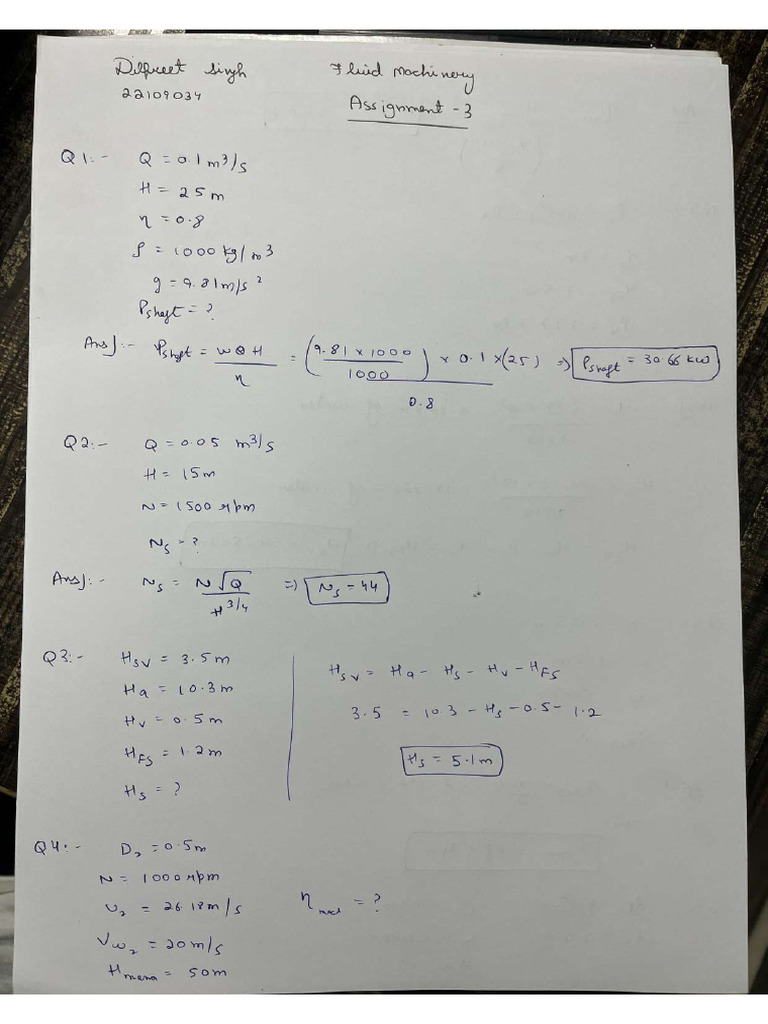 Dilpreet Singh
22109034
Fluid Machinery
Assignment - 3
Q1:- Q = 0.1 m³/s
H = 25 m
η = 0.8
ρ = 1000 kg/m³
g = 9.81 m/s²
P_shaft = ?
Ans]:- P_shaft = wQH / η = (9.81 × 1000 / 1000) × 0.1 × (25) / 0.8 => P_shaft = 30.66 kW
Q2:- Q = 0.05 m³/s
H = 15 m
N = 1500 rpm
N_s = ?
Ans]:- N_s = N√Q / H^3/4 => N_s = 44
Q3:- H_SV = 3.5 m
H_a = 10.3 m
H_v = 0.5 m
H_FS = 1.2 m
H_s = ?
H_SV = H_a - H_s - H_v - H_FS
3.5 = 10.3 - H_s - 0.5 - 1.2
H_s = 5.1 m
Q4:- D_2 = 0.5 m
N = 1000 rpm
U_2 = 26.18 m/s
V_w_2 = 20 m/s
H_mano = 50 m
η = ?